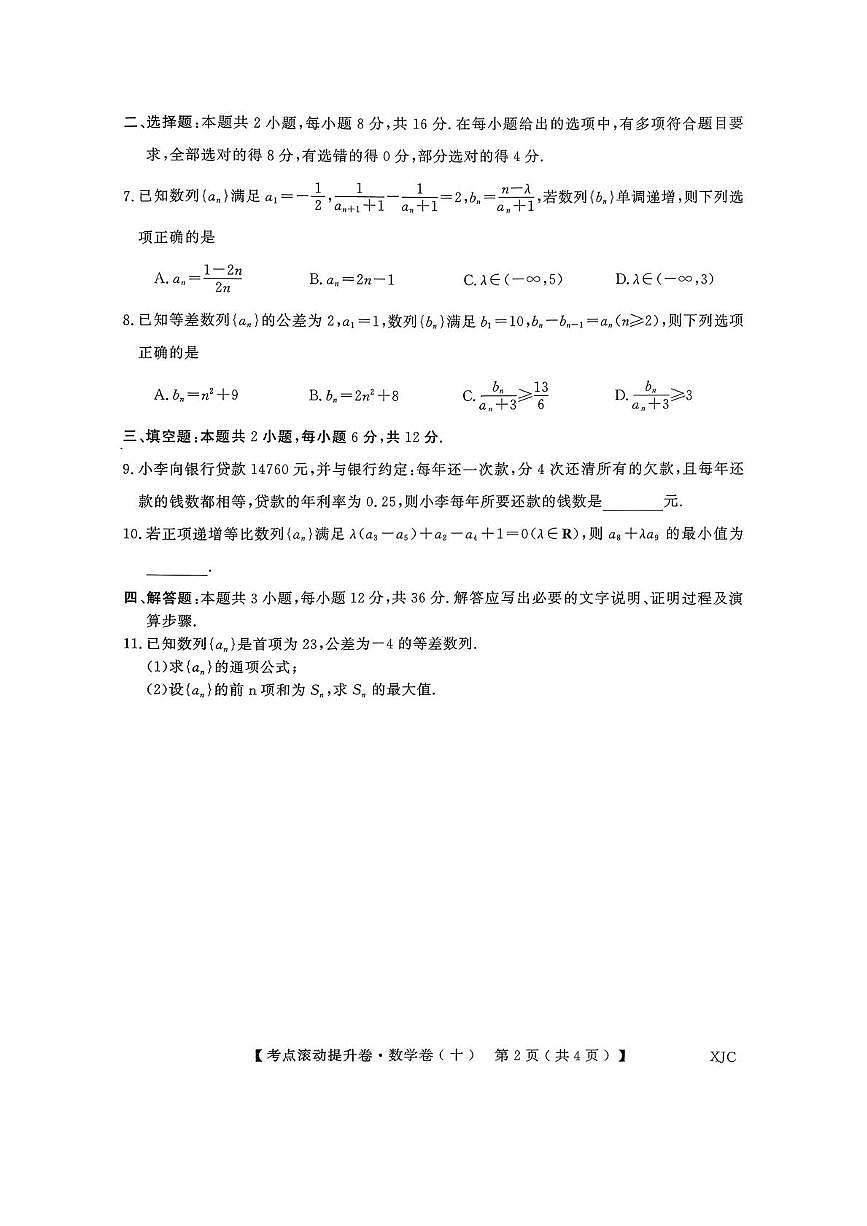 二、选择题:本题共 2 小题,每小题 8 分,共 16 分. 在每小题给出的选项中,有多项符合题目要
求,全部选对的得 8 分,有选错的得 0 分,部分选对的得 4 分.
7. 已知数列{aₙ}满足 a₁=-1/2, 1/(aₙ₊₁+1)-1/(aₙ+1)=2, bₙ=(n-λ)/(aₙ+1),若数列{bₙ}单调递增,则下列选
项正确的是
A. aₙ=(1-2n)/2n B. aₙ=2n-1 C. λ∈(-∞,5) D. λ∈(-∞,3)
8. 已知等差数列{aₙ}的公差为 2,a₁=1,数列{bₙ}满足 b₁=10,bₙ-bₙ₋₁=aₙ(n≥2),则下列选项
正确的是
A. bₙ=n²+9 B. bₙ=2n²+8 C. bₙ/(aₙ+3)≥13/6 D. bₙ/(aₙ+3)≥3
三、填空题:本题共 2 小题,每小题 6 分,共 12 分.
9. 小李向银行贷款 14760 元,并与银行约定:每年还一次款,分 4 次还清所有的欠款,且每年还
款的钱数都相等,贷款的年利率为 0.25,则小李每年所要还款的钱数是________元.
10. 若正项递增等比数列{aₙ}满足 λ(a₃-a₅)+a₂-a₄+1=0(λ∈R),则 a₈+λa₉ 的最小值为
________.
四、解答题:本题共 3 小题,每小题 12 分,共 36 分. 解答应写出必要的文字说明、证明过程及演
算步骤.
11. 已知数列{aₙ}是首项为 23,公差为-4 的等差数列.
(1)求{aₙ}的通项公式;
(2)设{aₙ}的前 n 项和为 Sₙ,求 Sₙ 的最大值.
【考点滚动提升卷·数学卷(十) 第 2 页(共 4 页)】 XJC